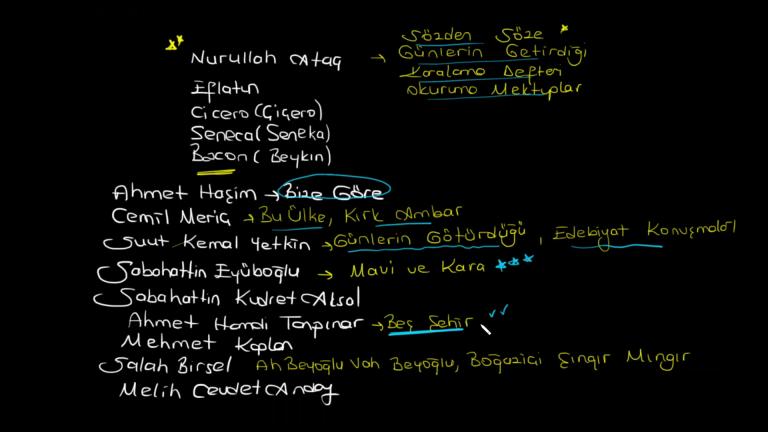 Sözden Söze
Nurullah Ataç → Günlerin Getirdiği
Karalama Defteri
Okuruma Mektuplar
Eflatun
Cicero (Çiçero)
Seneca (Seneka)
Bacon (Beykın)
Ahmet Haşim → Bize Göre
Cemil Meriç → Bu Ülke, Kırk Ambar
Suut Kemal Yetkin → Günlerin Götürdüğü, Edebiyat Konuşmaları
Sabahattin Eyüboğlu → Mavi ve Kara
Sabahattin Kudret Aksal
Ahmet Hamdi Tanpınar → Beş Şehir
Mehmet Kaplan
Salah Birsel Ah Beyoğlu Vah Beyoğlu, Boğaziçi Şıngır Mıngır
Melih Cevdet Anday